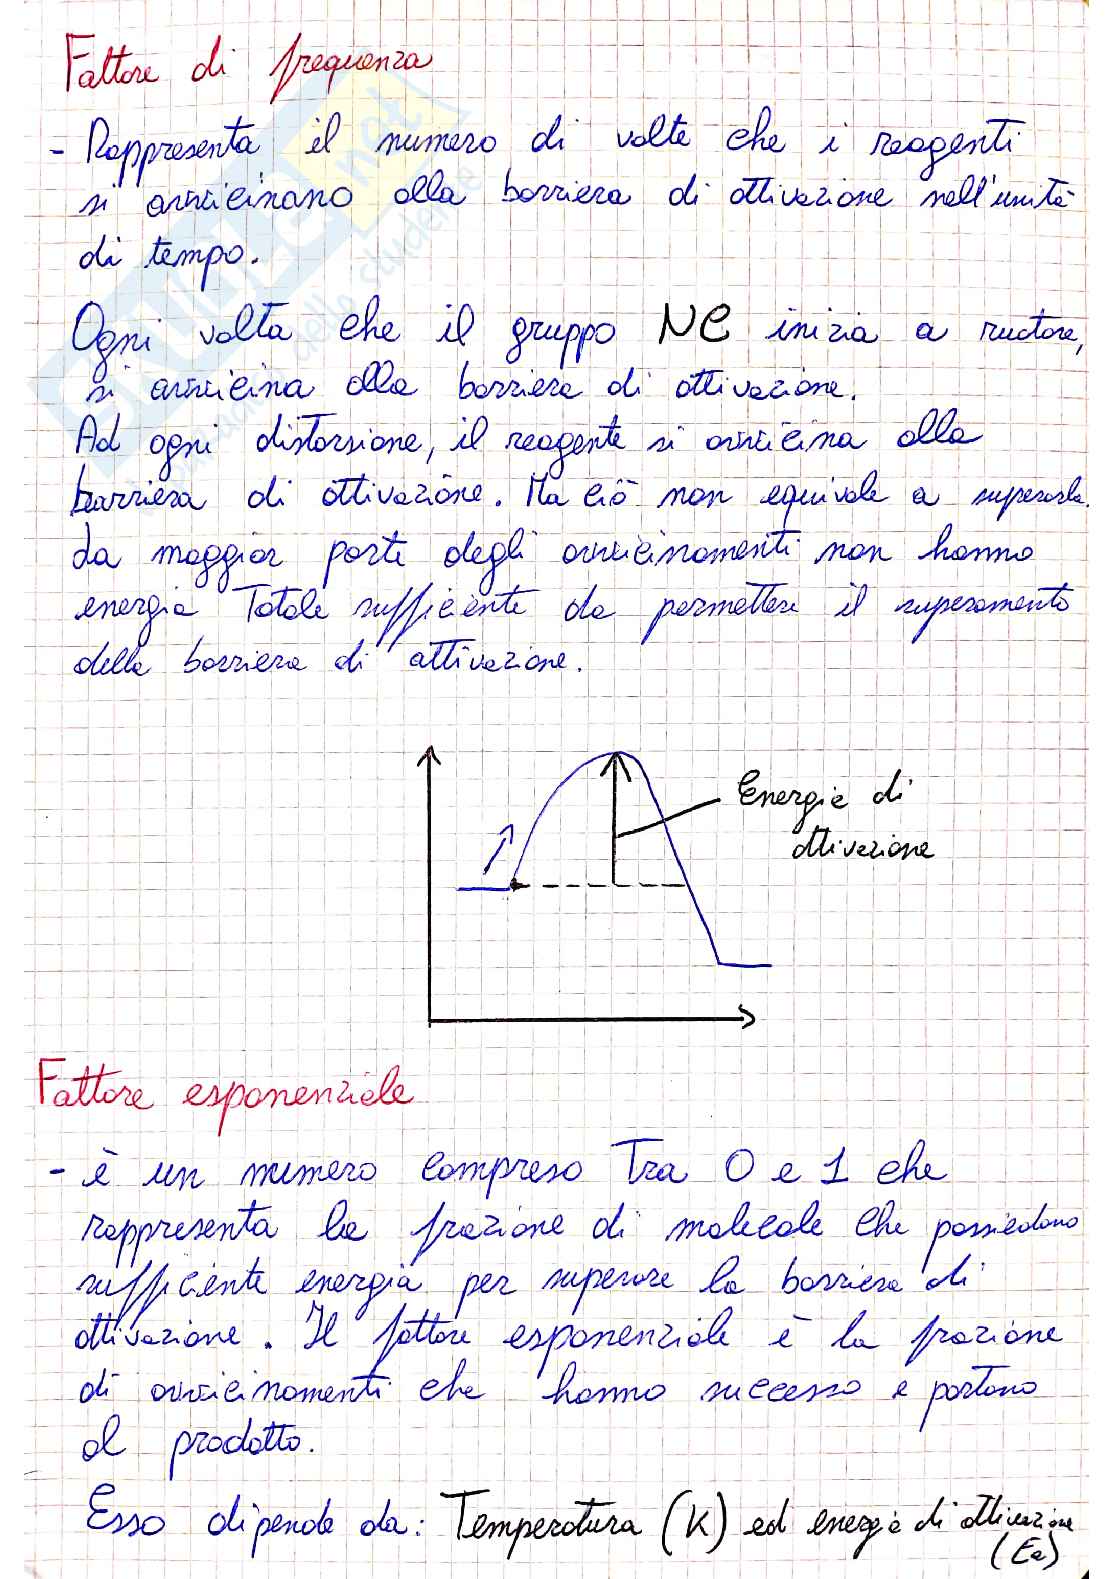 Fattore di frequenza
- Rappresenta il numero di volte che i reagenti
si avvicinano alla barriera di attivazione nell'unità
di tempo.
Ogni volta che il gruppo NC inizia a ruotare,
si avvicina alla barriera di attivazione.
Ad ogni distorsione, il reagente si avvicina alla
barriera di attivazione. Ma ciò non equivale a superarla.
La maggior parte degli avvicinamenti non hanno
energia Totale sufficiente da permettere il superamento
della barriera di attivazione.
Energia di
attivazione
Fattore esponenziale
- è un numero compreso Tra 0 e 1 che
rappresenta la frazione di molecole che possiedono
sufficiente energia per superare la barriera di
attivazione. Il fattore esponenziale è la frazione
di avvicinamenti che hanno successo e portano
al prodotto.
Esso dipende da: Temperatura (K) ed energia di attivazione
(Ea)